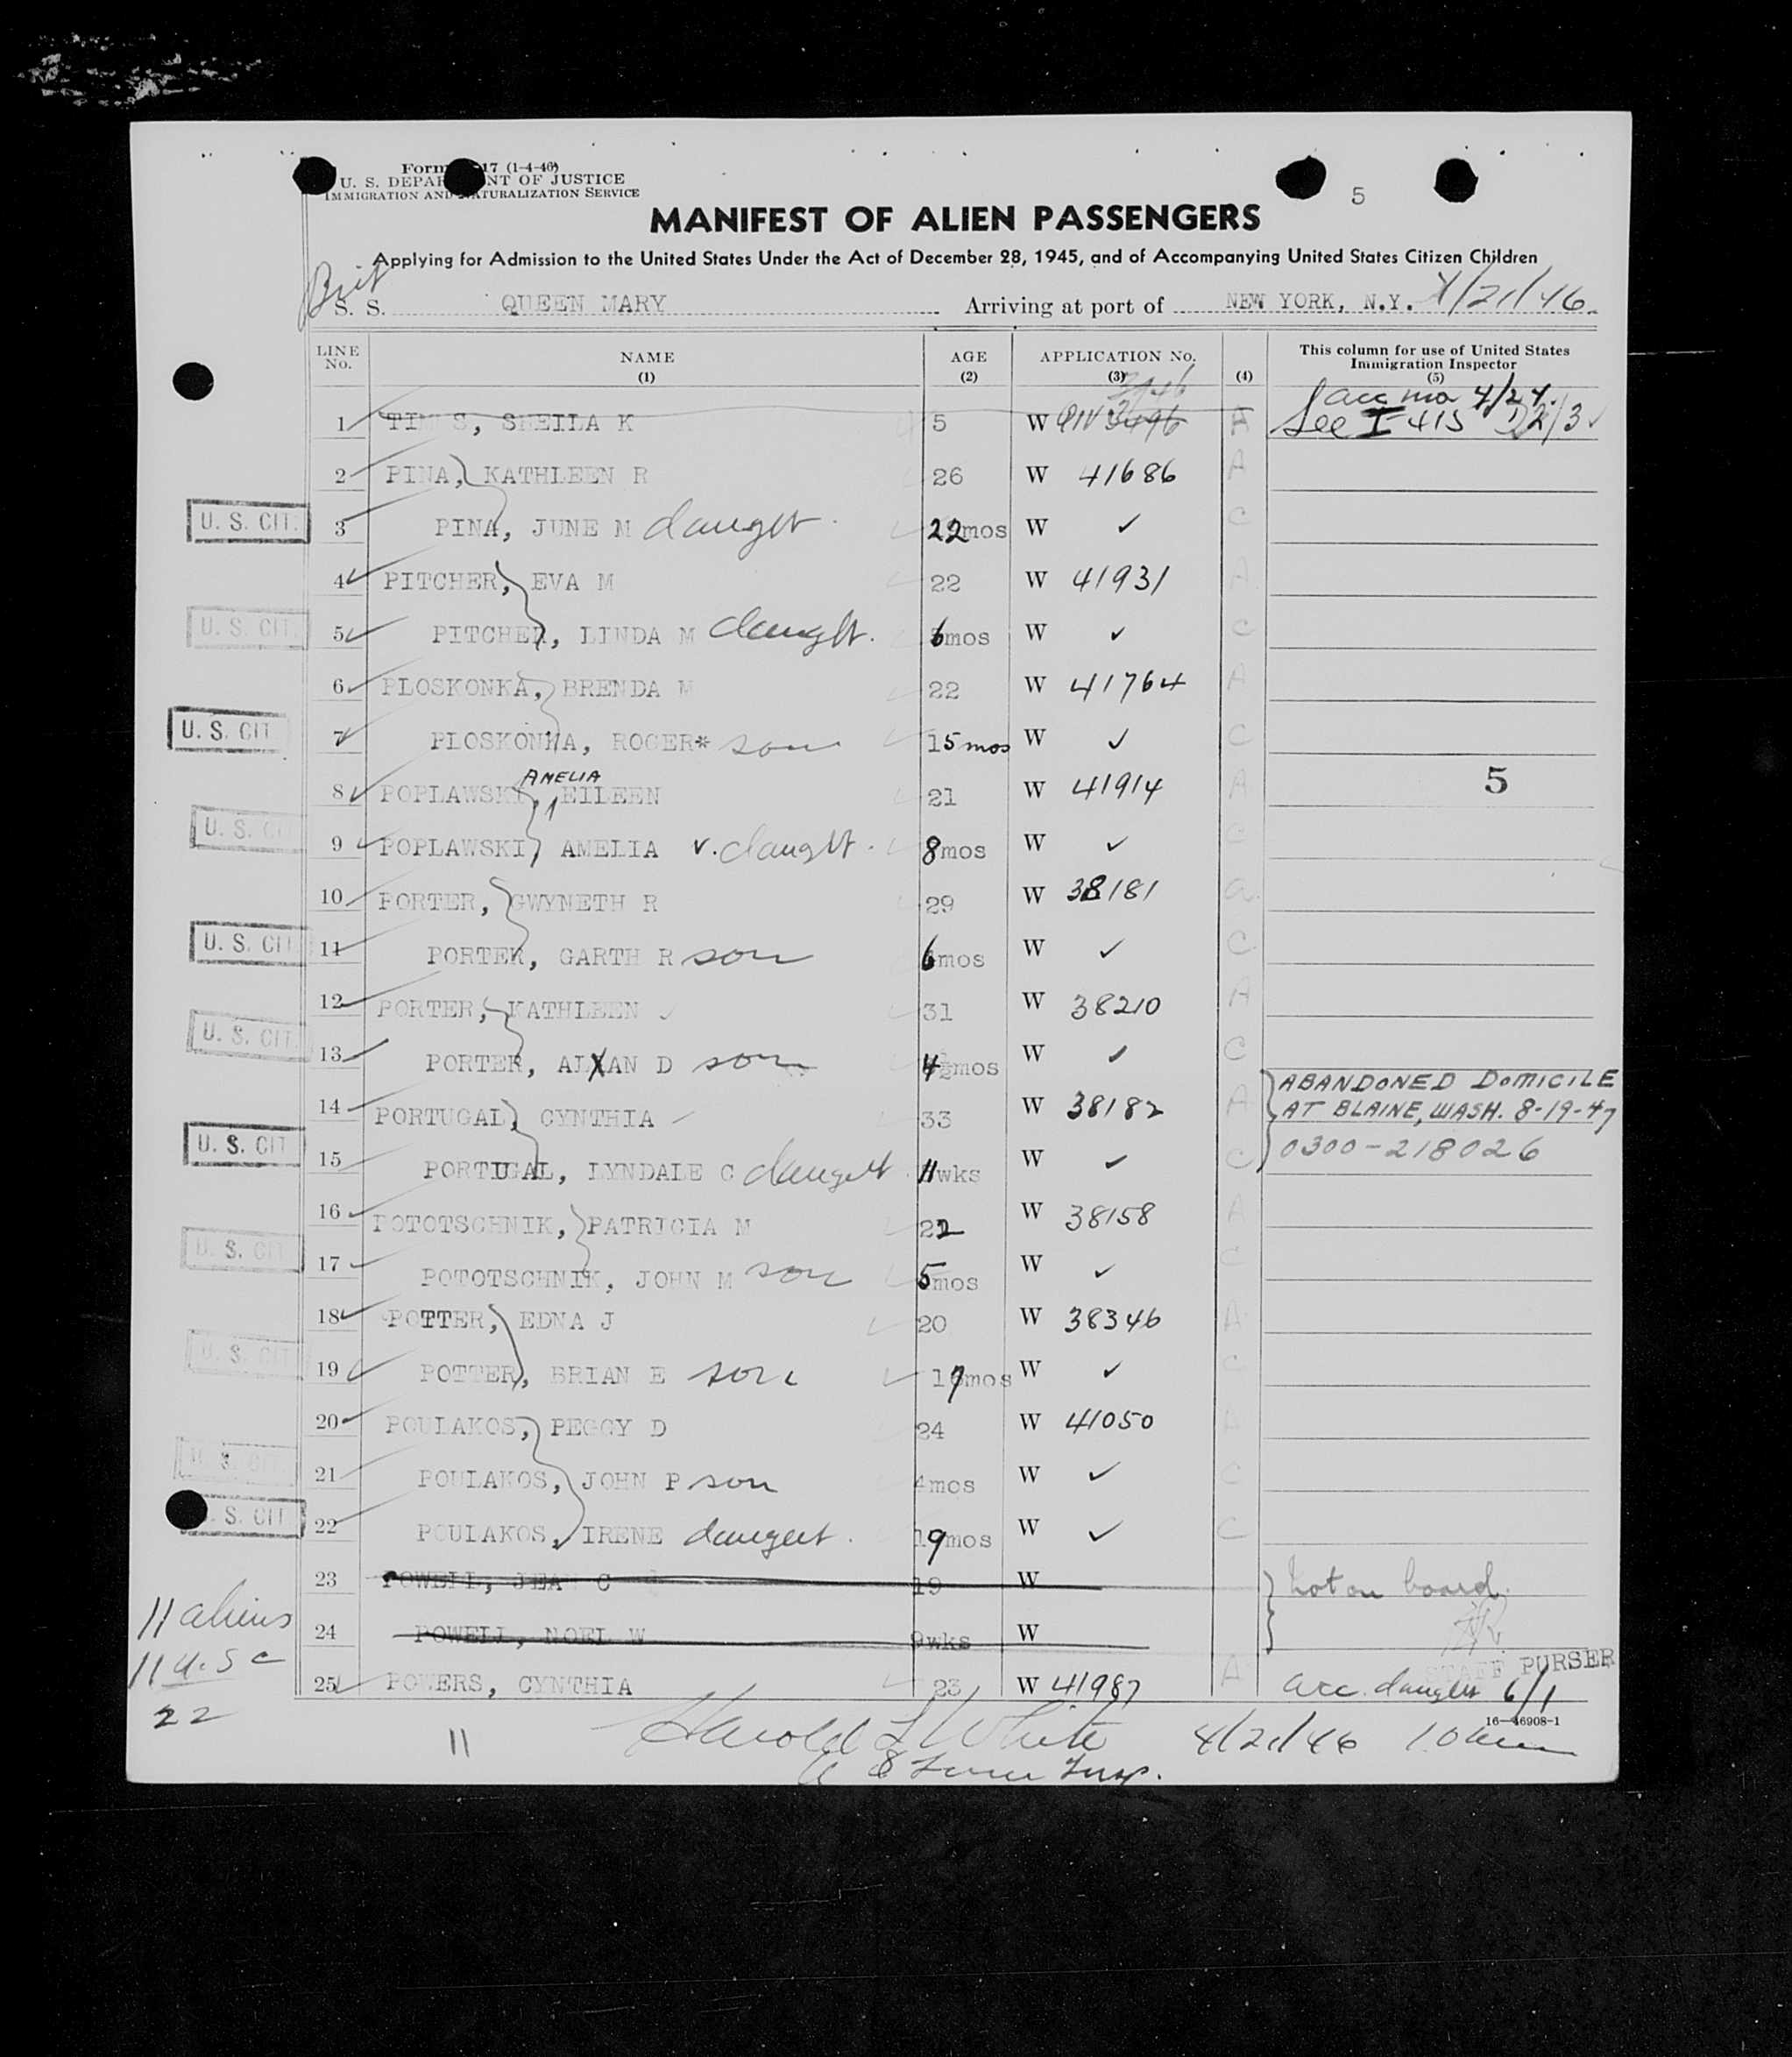 5
U. S. DEPAR NT OF JUSTICE
IMMIGRATION AND NATURALIZATION SERVICE
MANIFEST OF ALIEN PASSENGERS
Applying for Admission to the United States Under the Act of December 28, 1945, and of Accompanying United States Citizen Children
Brit
S. S. QUEEN MARY Arriving at port of NEW YORK, N.Y. 4/21/46
LINE No. NAME (1) AGE (2) APPLICATION No. (3) (4) This column for use of United States Immigration Inspector (5)
acc ma 4/24.
1 SHEILA K 5 W A See I-415
2 PINA, KATHLEEN R 26 W 41686 A
U. S. CIT. 3 PINA, JUNE M daught. 22mos W ✓ C
4 PITCHER, EVA M 22 W 41931 A
U. S. CIT. 5 PITCHER, LINDA M daught. 6mos W ✓ C
6 PLOSKONKA, BRENDA M 22 W 41764 A
U. S. CIT 7 PLOSKONKA, ROGER* son 15mos W ✓ C
AMELIA
8 POPLAWSKI, EILEEN 21 W 41914 A
5
U. S. CI 9 POPLAWSKI, AMELIA v. daught. 8mos W ✓ C
10 PORTER, GWYNETH R 29 W 38181 a
U. S. CIT 11 PORTER, GARTH R son 6mos W ✓ C
12 PORTER, KATHLEEN 31 W 38210 A
U. S. CIT. 13 PORTER, ALXAN D son 4mos W ✓ C
ABANDONED DOMICILE
14 PORTUGAL, CYNTHIA 33 W 38182 A AT BLAINE, WASH. 8-19-47
U. S. CIT 15 PORTUGAL, LYNDALE C daught 11wks W ✓ C 0300-218026
16 POTOTSCHNIK, PATRICIA M 22 W 38158 A
U. S. CI 17 POTOTSCHNIK, JOHN M son 5mos W ✓ C
18 POTTER, EDNA J 20 W 38346 A
U. S. CIT 19 POTTER, BRIAN E son 17mos W ✓ C
20 POULAKOS, PEGGY D 24 W 41050 A
U. S. CIT. 21 POULAKOS, JOHN P son 4mos W ✓ C
S. CIT 22 POULAKOS, IRENE daught. 19mos W ✓ C
23 POWELL, JEAN C 19 W Not on board.
11 aliens
24 POWELL, NOEL W 9wks W
11 U.S C
STAFF PURSER
25 POWERS, CYNTHIA 23 W 41987 A acc. daught 6/1
22
16—46908-1
11 Harold L White 4/21/46
Insp.